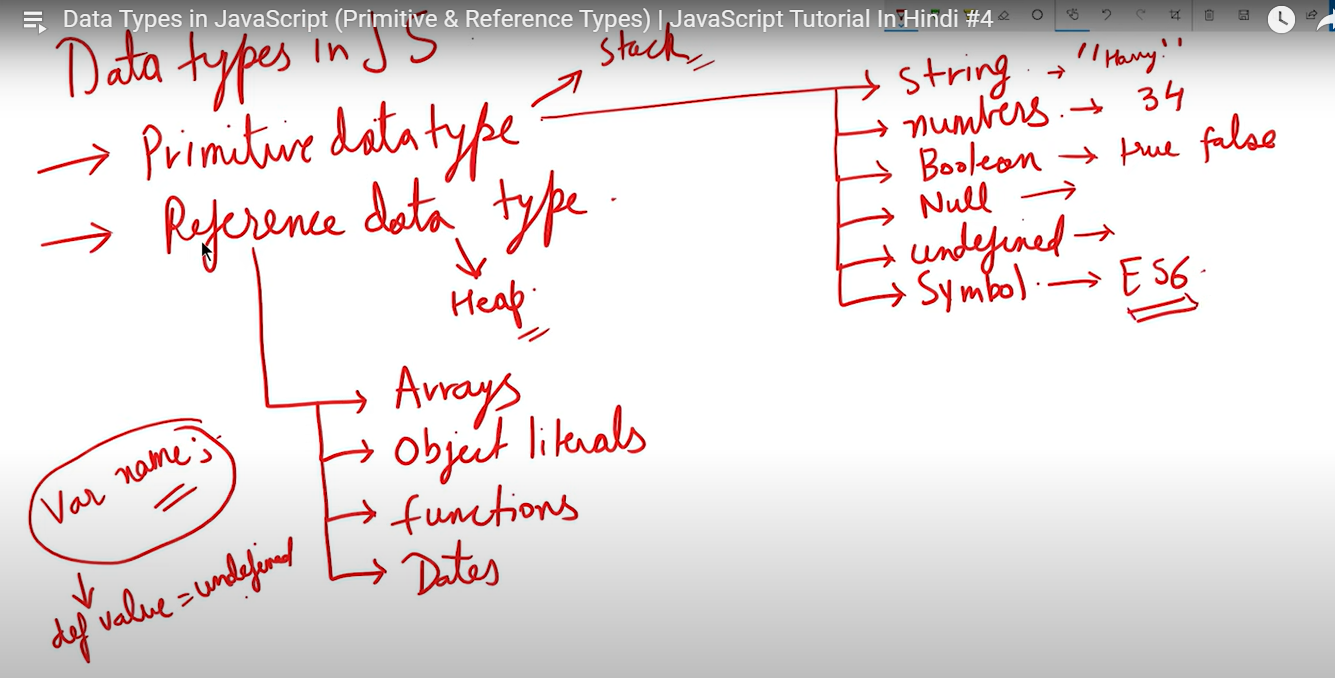 Data Types in JavaScript (Primitive & Reference Types) | JavaScript Tutorial In Hindi #4
Data types in JS
Stack
→ Primitive data type
→ Reference data type.
Heap.
→ String. → "Harry"
→ numbers. → 34
→ Boolean → true false
→ Null →
→ undefined →
→ Symbol. → ES6.
→ Arrays
→ Object literals
→ functions
→ Dates
Var name;
def value = undefined